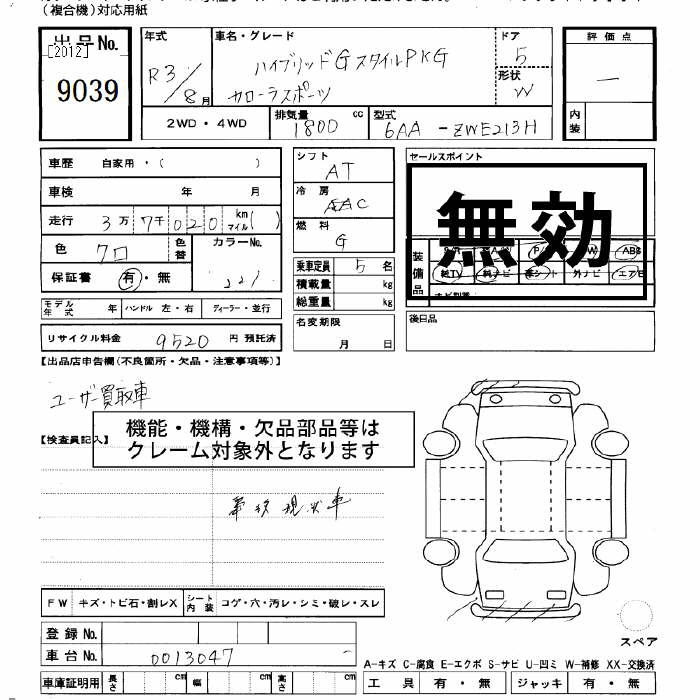 （複合機）対応用紙
出品No.
[2012]
9039
年式
R3/8月
車名・グレード
ハイブリッドGスタイルPKG
カローラスポーツ
ドア
5
形状
W
評価点
ー
内装
2WD・4WD
排気量
1800
cc
型式
6AA-ZWE213H
車歴 自家用・( )
車検 年 月
走行 3万7千020 km マイル( )
色 クロ
色替
カラーNo.
221
保証書 有・無
モデル年式 年 ハンドル 左・右 ディーラー・並行
リサイクル料金 9520 円 預託済
シフト
AT
冷房
AAC
燃料
G
乗車定員 5 名
積載量 kg
総重量 kg
名変期限
月 日
セールスポイント
無効
装備品
ABS
純TV ナビ 革シート 外ナビ エアB
後日品
【出品店申告欄(不良箇所・欠品・注意事項等)】
ユーザー買取車
【検査員記入】
機能・機構・欠品部品等は
クレーム対象外となります
事故現状車
FW キズ・トビ石・割レX シート内装 コゲ・穴・汚レ・シミ・破レ・スレ
登録No.
車台No. 0013047
車庫証明用 長さ cm 幅 cm 高さ cm
スペア
A-キズ C-腐食 E-エクボ S-サビ U-凹ミ W-補修 XX-交換済
工具 有・無 ジャッキ 有・無